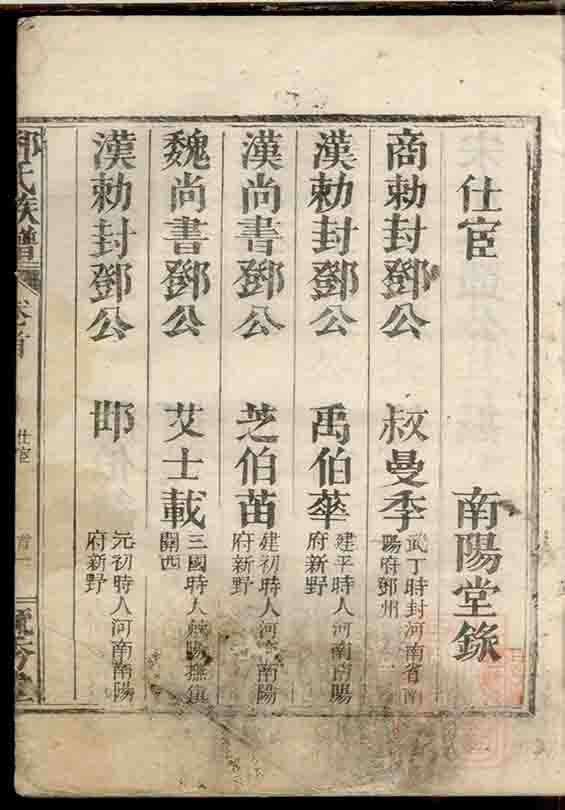 仕宦 南陽堂錄
商勅封鄧公 叔曼季 武丁時封河南省南陽府鄧州
漢勅封鄧公 禹伯華 建平時人河南南陽府新野
漢尚書鄧公 芝伯苗 建初時人河南南陽府新野
魏尚書鄧公 艾士載 三國時人 陽撫鎮關西
漢勅封鄧公 邯 元初時人河南南陽府新野
鄧氏族譜 卷首 仕宦 首